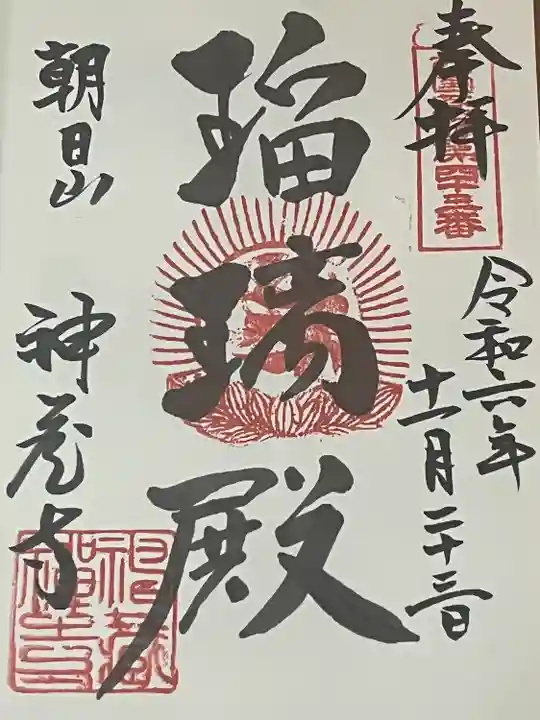 奉拝
第四十五番
令和六年
十一月二十三日
瑠璃殿
朝日山
神蔵寺
神蔵寺